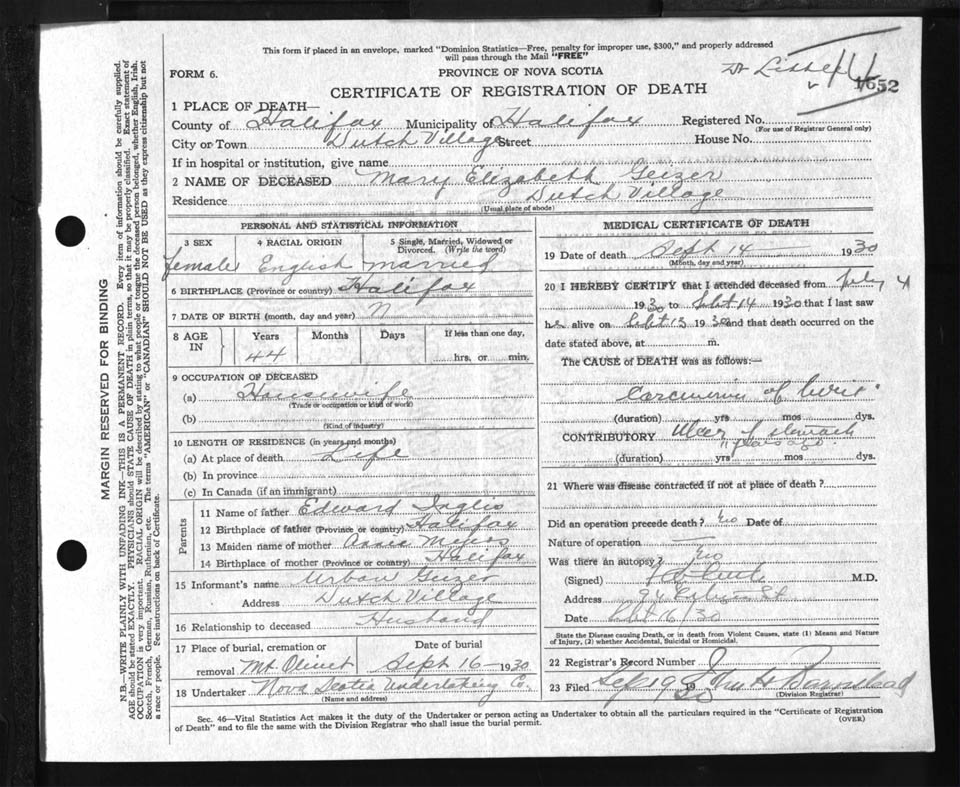 This form if placed in an envelope, marked "Dominion Statistics—Free, penalty for improper use, $300," and properly addressed
will pass through the Mail "FREE"
FORM 6.
PROVINCE OF NOVA SCOTIA
CERTIFICATE OF REGISTRATION OF DEATH
652
1 PLACE OF DEATH—
County of Halifax Municipality of Halifax Registered No.
(For use of Registrar General only)
City or Town Dutch Village Street House No.
If in hospital or institution, give name
2 NAME OF DECEASED Mary Elizabeth Geizer
Residence Dutch Village
(Usual place of abode)
PERSONAL AND STATISTICAL INFORMATION
3 SEX 4 RACIAL ORIGIN 5 Single, Married, Widowed or
Divorced. (Write the word)
female English married
6 BIRTHPLACE (Province or country) Halifax
7 DATE OF BIRTH (month, day and year) N
8 AGE IN Years Months Days If less than one day,
44 hrs. or min.
9 OCCUPATION OF DECEASED
(a) Housewife
(Trade or occupation or kind of work)
(b)
(Kind of industry)
10 LENGTH OF RESIDENCE (in years and months)
(a) At place of death Life
(b) In province
(c) In Canada (if an immigrant)
Parents
11 Name of father Edward Inglis
12 Birthplace of father (Province or country) Halifax
13 Maiden name of mother Annie
14 Birthplace of mother (Province or country) Halifax
15 Informant's name Urban Geizer
Address Dutch Village
16 Relationship to deceased Husband
17 Place of burial, cremation or Date of burial
removal Mt. Olivet Sept 16 1930
18 Undertaker Nova Scotia Undertaking Co.
(Name and address)
MEDICAL CERTIFICATE OF DEATH
19 Date of death Sept 14 1930
(Month, day and year)
20 I HEREBY CERTIFY that I attended deceased from July 4
1930 to Sept 14 1930 that I last saw
her alive on Sept 13 1930 and that death occurred on
date stated above, at m.
The CAUSE of DEATH was as follows:—
Carcinoma of liver
(duration) yrs mos dys.
CONTRIBUTORY Ulcer of stomach
11 years ago
(duration) yrs mos dys.
21 Where was disease contracted if not at place of death?
Did an operation precede death? No Date of
Nature of operation —
Was there an autopsy? No
(Signed) M.D.
Address 94 St
Date Sept 16/30
State the Disease causing Death, or in death from Violent Causes, state (1) Means and Nature
of Injury, (2) whether Accidental, Suicidal or Homicidal.
22 Registrar's Record Number
23 Filed Sep 19 30 Jno H Barnstead
(Division Registrar)
Sec. 46—Vital Statistics Act makes it the duty of the Undertaker or person acting as Undertaker to obtain all the particulars required in the "Certificate of Registration
of Death" and to file the same with the Division Registrar who shall issue the burial permit. (OVER)
MARGIN RESERVED FOR BINDING
N.B.—WRITE PLAINLY WITH UNFADING INK—THIS IS A PERMANENT RECORD. Every item of information should be carefully supplied.
AGE should be stated EXACTLY. PHYSICIANS should STATE CAUSE OF DEATH in plain terms, so that it may be properly classified. Exact statement of
OCCUPATION is very important. RACIAL ORIGIN will be described by stating to what people or tongue the deceased person belonged, whether English, Irish,
Scotch, French, German, Russian, Ruthenian, etc. The terms "AMERICAN" or "CANADIAN" SHOULD NOT BE USED as they express citizenship but not
a race or people. Fee instructions on back of Certificate.